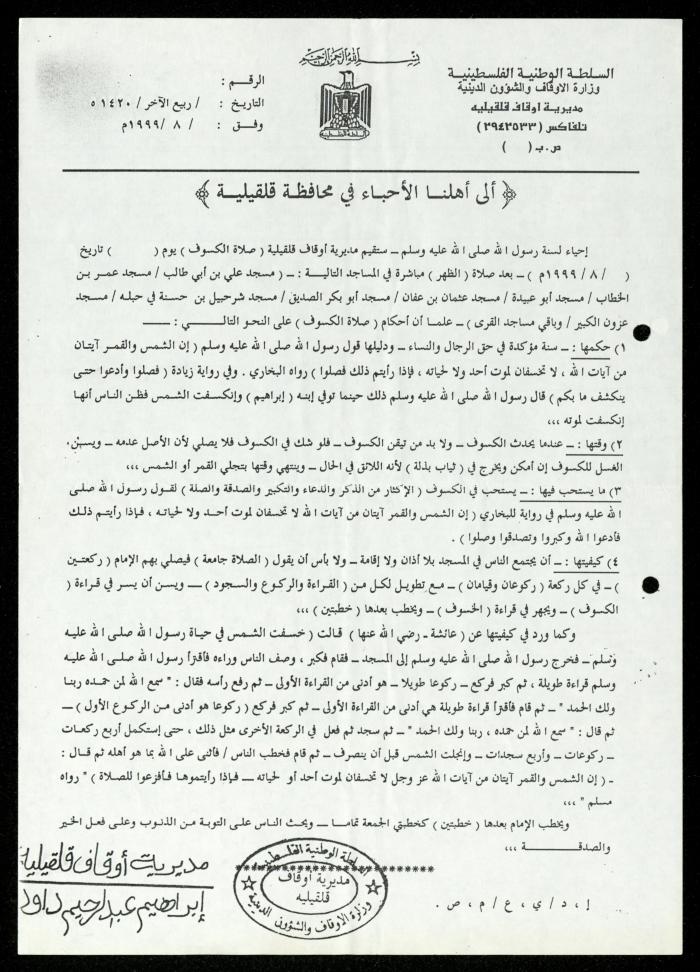 بسم الله الرحمن الرحيم
السلطة الوطنية الفلسطينية
وزارة الاوقاف والشؤون الدينية
مديرية اوقاف قلقيليه
تلفاكس (٢٩٤٢٥٣٣)
ص.ب ( )
الرقم :
التاريخ : / ربيع الآخر / ١٤٢٠ ه
وفق : / ٨ /١٩٩٩م
﴿ ألى أهلنـا الأحباء في محافظة قلقيليـة ﴾
إحياء لسنة رسول الله صلى الله عليه وسلم ــ ستقيم مديرية أوقاف قلقيلية ( صلاة الكسوف ) يوم ( ) تاريخ
( / ٨/ ١٩٩٩م ) ــ بعد صلاة ( الظهر ) مباشرة في المساجد التاليـة : ــ ( مسجد علي بن أبي طالب / مسجد عمر بن
الخطاب / مسجد أبو عبيدة / مسجد عثمان بن عفان / مسجد أبو بكر الصديق / مسجد شرحبيل بن حسنة في حبله / مسجد
عزون الكبير / وباقي مساجد القرى ) ــ علمـا أن أحكام ( صلاة الكسوف ) على النحو التالـــي : ـــــ
١) حكمها : ــ سنة مؤكدة في حق الرجال والنساء ــ ودليلها قول رسول الله صلى الله عليه وسلم ( إن الشمس والقمر آيتان
من آيات الله ، لا تخسفان لموت أحد ولا لحياته ، فإذا رأيتم ذلك فصلوا ) رواه البخاري . وفي رواية زيادة ( فصلوا وأدعوا حتى
ينكشف ما بكم ) قال رسول الله صلى الله عليه وسلم ذلك حينما توفي إبنه ( إبراهيم ) وإنكسفت الشمس فظن الناس أنها
إنكسفت لموته ،،،
٢) وقتها : ــ عندما يحدث الكسوف ــ ولا بد من تيقن الكسوف ــ فلو شك في الكسوف فلا يصلي لأن الأصل عدمه ــ ويسن،
الغسل للكسوف إن أمكن ويخرج في ( ثياب بذلة ) لأنه اللائق في الحال ــ وينتهي وقتها بتجلي القمر أو الشمس ،،،
٣) ما يستحب فيها : ــ يستحب في الكسوف ( الإكثار من الذكر والدعاء والتكبير والصدقة والصلة ) لقول رسول الله صلـى
الله عليه وسلم في رواية للبخاري ( إن الشمس والقمر آيتان من آيات الله لا تخسفان لموت أحـد ولا لحياتـه ، فـإذا رأيتـم ذلـك
فأدعوا الله وكبروا وتصدقوا وصلوا ) .
٤) كيفيتها : ــ أن يجتمع الناس في المسجد بلا أذان ولا إقامة ــ ولا بأس أن يقول ( الصلاة جامعة ) فيصلي بهم الإمام ( ركعتـين
) ــ في كل ركعة ( ركوعان وقيامان ) ــ مـع تطويـل لكـل مـن ( القراءة والركـوع والسجـود ) ـــ ويسن أن يسر في قراءة (
الكسوف ) ــ ويجهر في قراءة ( الخسوف ) ــ ويخطب بعدها ( خطبتين ) ،،،
وكما ورد في كيفيتها عن ( عائشة ــ رضي الله عنها ) قالت ( خسفت الشمس في حياة رسول الله صلـى الله عليـه
وسلم ــ فخرج رسول الله صلى الله عليه وسلم إلى المسجد ــ فقام فكبر ، وصف الناس وراءه فأقترأ رسول الله صلـى الله عليـه
وسلم قراءة طويلة ، ثم كبر فركع ــ ركوعا طويلا ــ هو أدنى من القراءة الأولى ــ ثم رفع رأسه فقال : " سمع الله لمن حمـده ربنـا
ولك الحمد " ــ ثم قام فأقترأ قراءة طويلة هي أدنى من القراءة الأولى ــ ثم كبر فركع ( ركوعا هو أدنـى من الركـوع الأول ) ـــ
ثم قال : " سمع الله لمن حمده ، ربنا ولك الحمد " ــ ثم سجد ثم فعل في الركعة الأخرى مثل ذلك ، حتى إستكمل أربع ركعـات
ــ ركوعات ــ وأربع سجدات ــ وإنجلت الشمس قبل أن ينصرف ــ ثم قام فخطب الناس / فأثنى على الله بما هو أهله ثم قال :
ـ ( إن الشمس والقمر آيتان من آيات الله عز وجل لا تخسفان لموت أحد أو لحياته ــ فـإذا رأيتموهـا فـأفزعوا للصلاة ) " رواه
مسلم " ،،،
ويخطب الإمام بعدها ( خطبتين ) كخطبتي الجمعة تمامـا ــ ويحث الناس على التوبة من الذنوب وعلى فعل الخير
والصدقــــة ،،،
مديرية أوقاف قلقيلية
إبراهيم عبد الرحيم داود
السلطة الوطنية الفلسطينية
مديرية أوقاف
قلقيليه
وزارة الاوقاف والشؤون الدينية
إ ، د / ي ، ع / م ، ص .